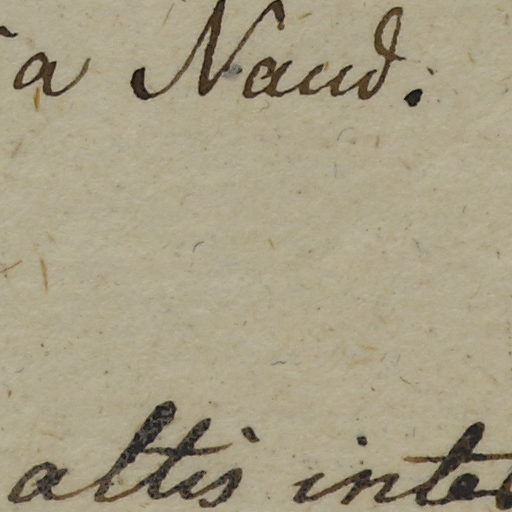 a Naud.
altis inte